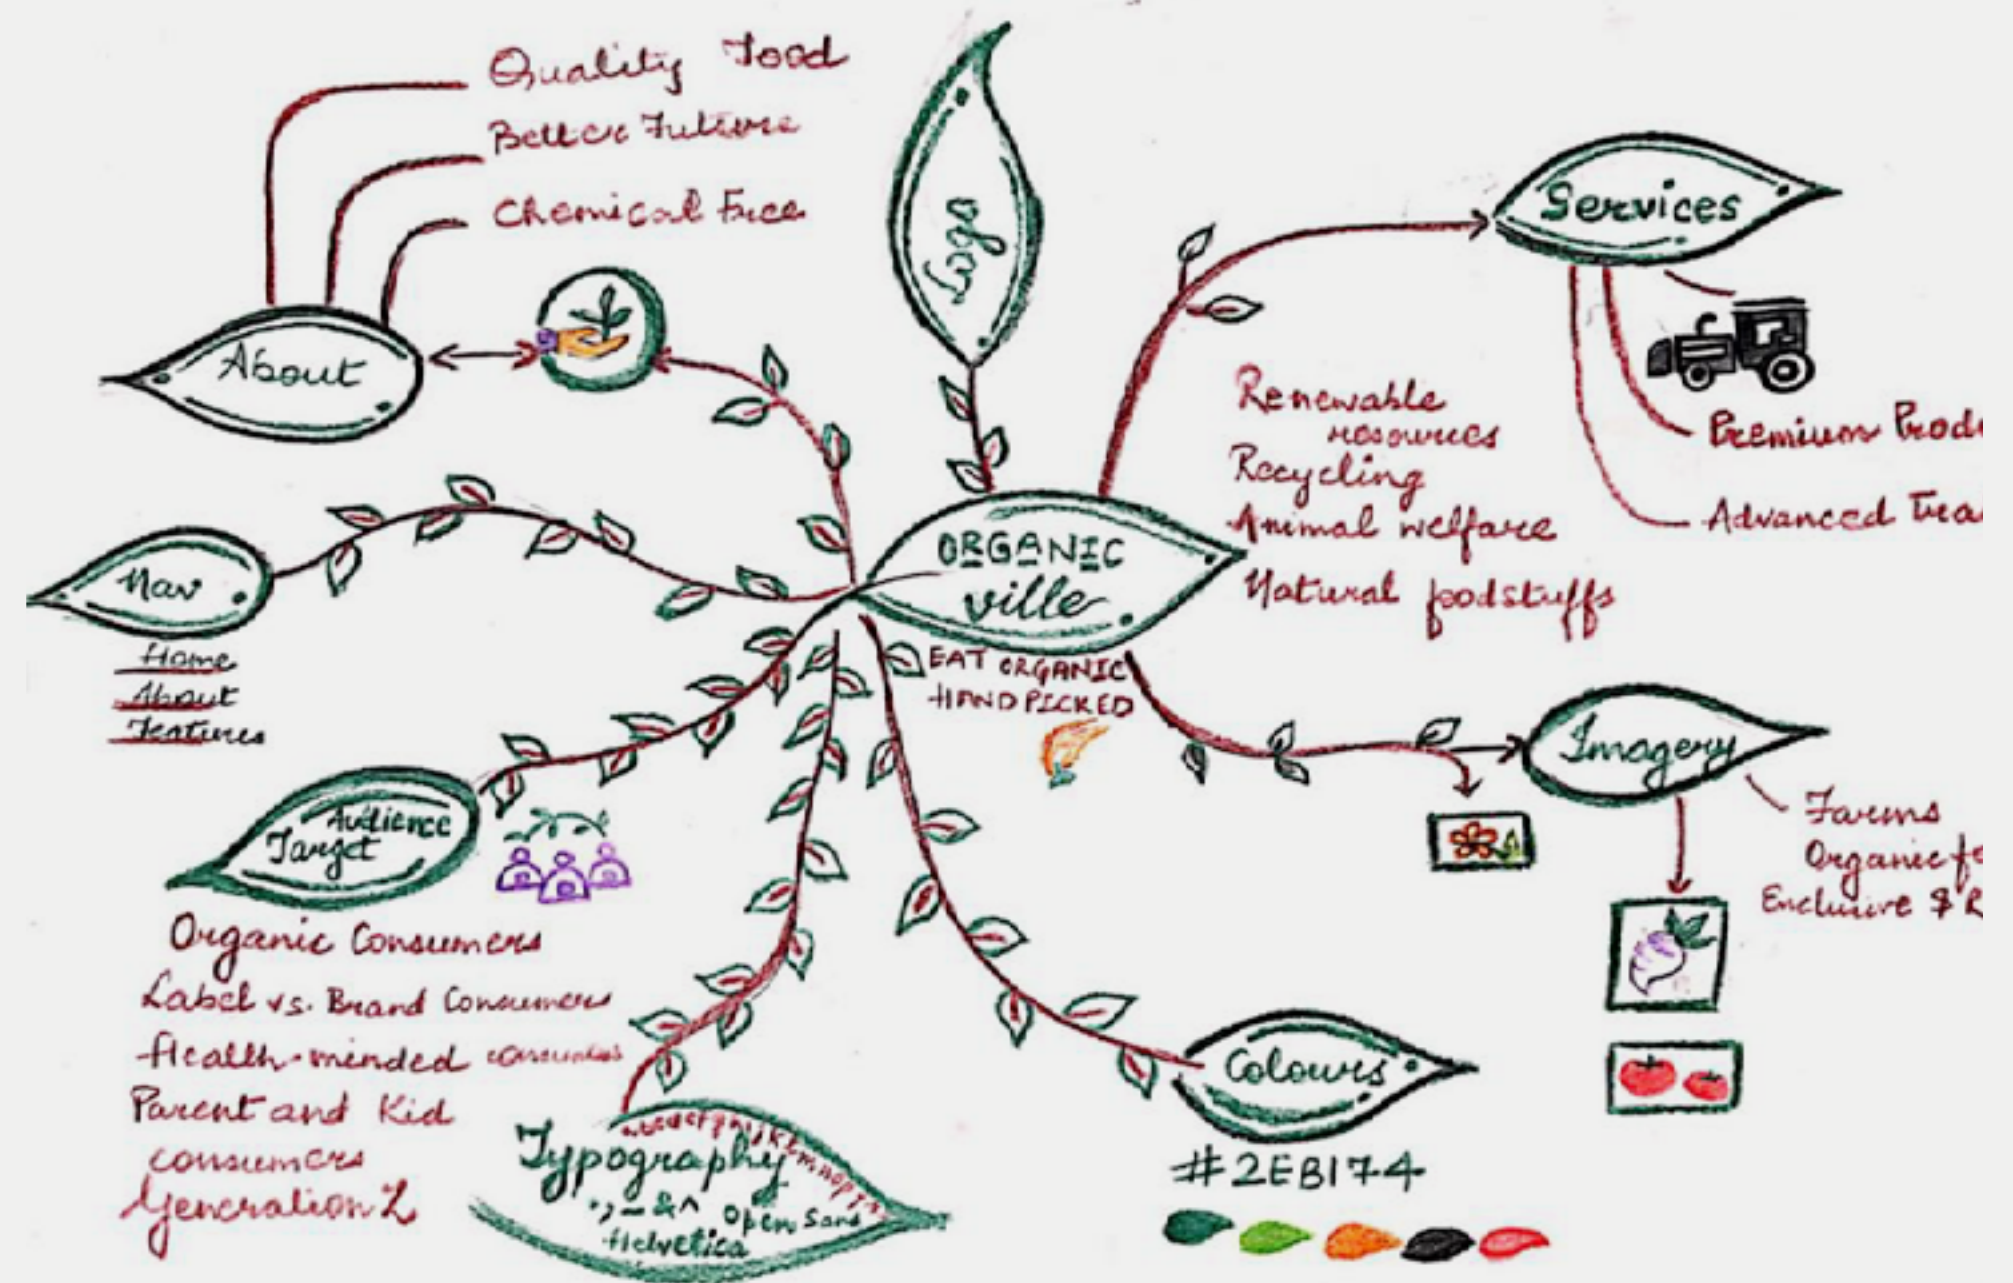 Quality Food
Better Future
Chemical Free
About
Logo
Services
Premium
Advanced
Renewable
resources
Recycling
Animal welfare
Natural foodstuffs
ORGANIC
ville
EAT ORGANIC
HANDPICKED
Nav
Home
About
Features
Audience
Target
Organic Consumers
Label vs. Brand Consumers
Health-minded consumers
Parent and Kid
consumers
Generation Z
Imagery
Farms
Organic
Exclusive &
Typography
Open Sans
Helvetica
Colours
#2EB174